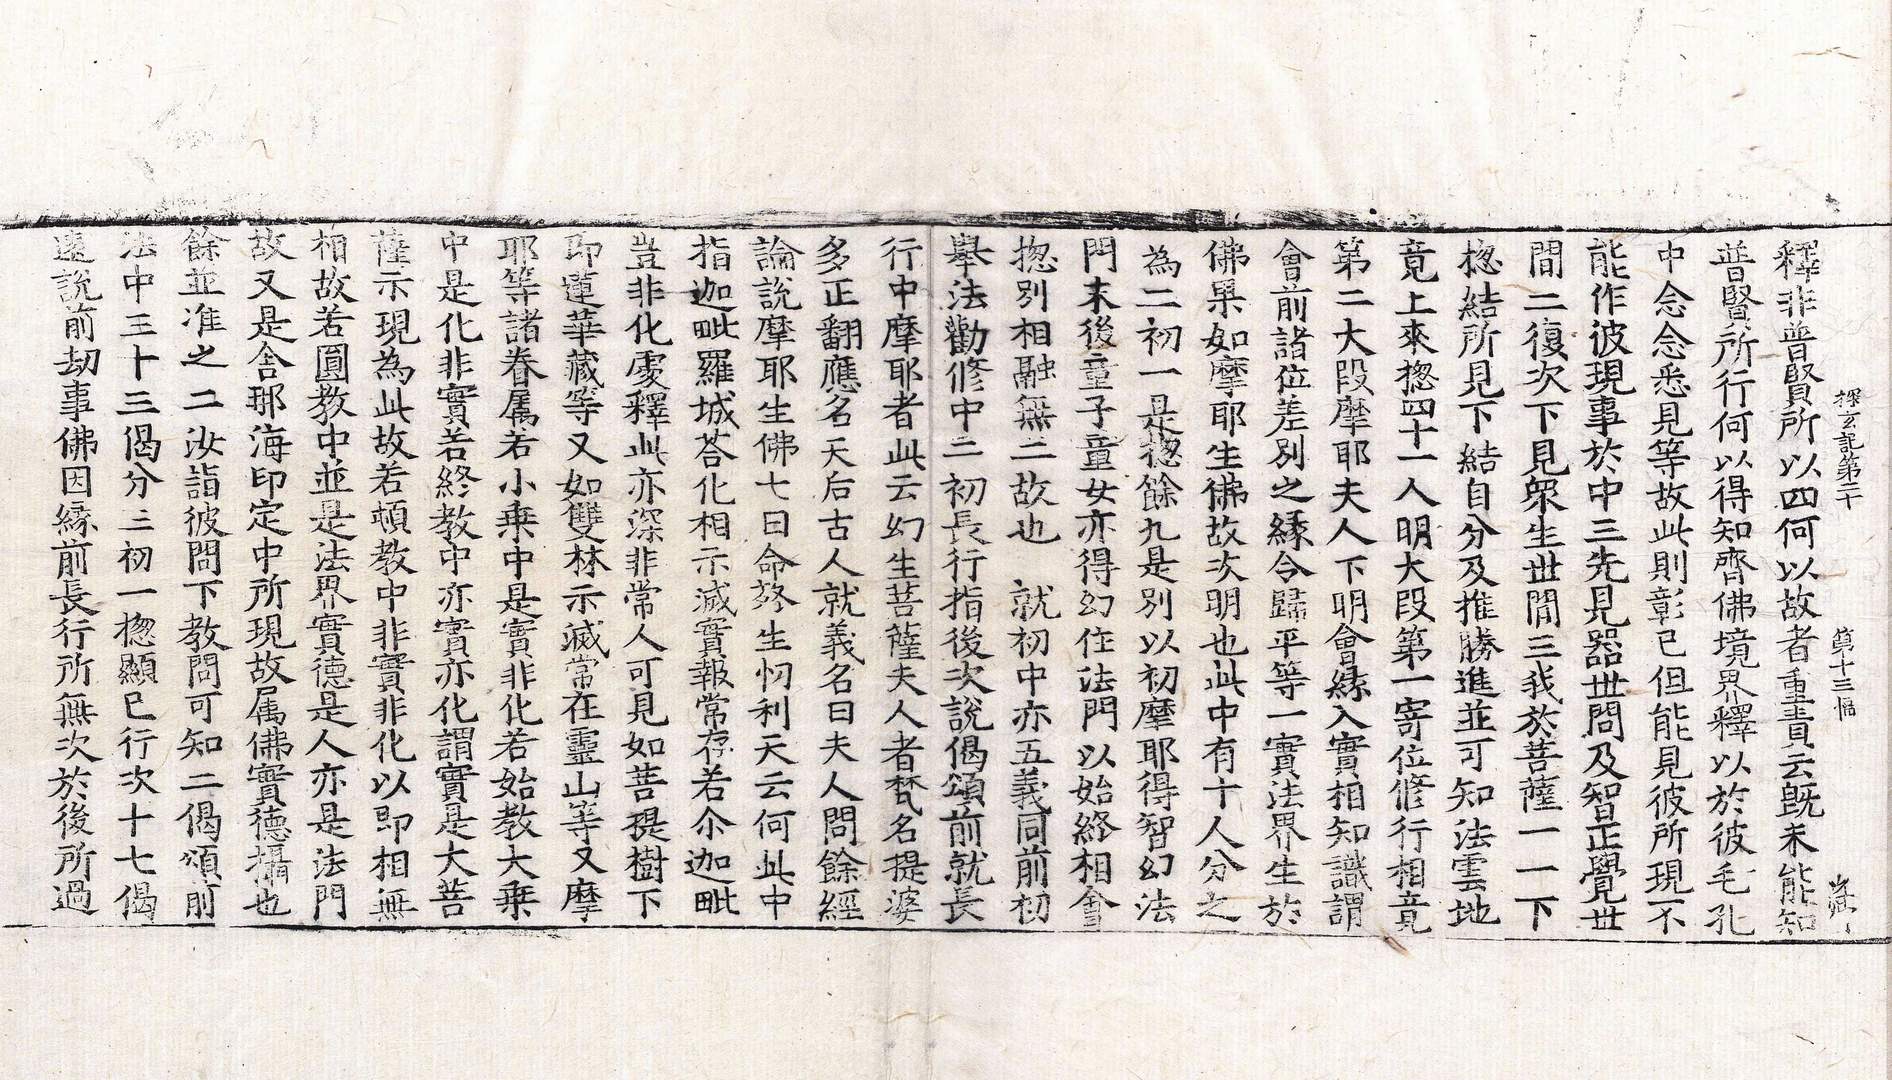 探玄記第二十 第十三幅
釋非普賢所以四何以故者重責云旣未能知
普賢所行何以得知齊佛境界釋以於彼毛孔
中念念悉見等故此則彰已但能見彼所現不
能作彼現事於中三先見器世間及智正覺世
間二復次下見衆生世間三我於菩薩一一下
揔結所見下結自分及推勝進並可知法雲地
竟上來揔四十一人明大段第一寄位修行相竟
第二大段摩耶夫人下明會緣入實相知識謂
會前諸位差別之緣令歸平等一實法界生於
佛果如摩耶生佛故次明也此中有十人分之
為二初一是揔餘九是別以初摩耶得智幻法
門末後童子童女亦得幻住法門以始終相會
揔別相融無二故也 就初中亦五義同前初
舉法勸修中二初長行指後次說偈頌前就長
行中摩耶者此云幻生菩薩夫人者梵名提婆
多正翻應名天后古人就義名曰夫人問餘經
論說摩耶生佛七日命終生忉利天云何此中
指迦毗羅城荅化相示滅實報常存若尒迦毗
豈非化處釋此亦深非常人可見如菩提樹下
即蓮華藏等又如雙林示滅常在靈山等又摩
耶等諸眷屬若小乗中是實非化若始教大乗
中是化非實若終教中亦實亦化謂實是大菩
薩示現為此故若頓教中非實非化以即相無
相故若圓教中並是法界實德是人亦是法門
故又是舍那海印定中所現故属佛實德攝也
餘並准之二汝詣彼問下教問可知二偈頌前
法中三十三偈分二初一揔顯已行次十七偈
遠說前劫事佛因緣前長行所無次於後所過